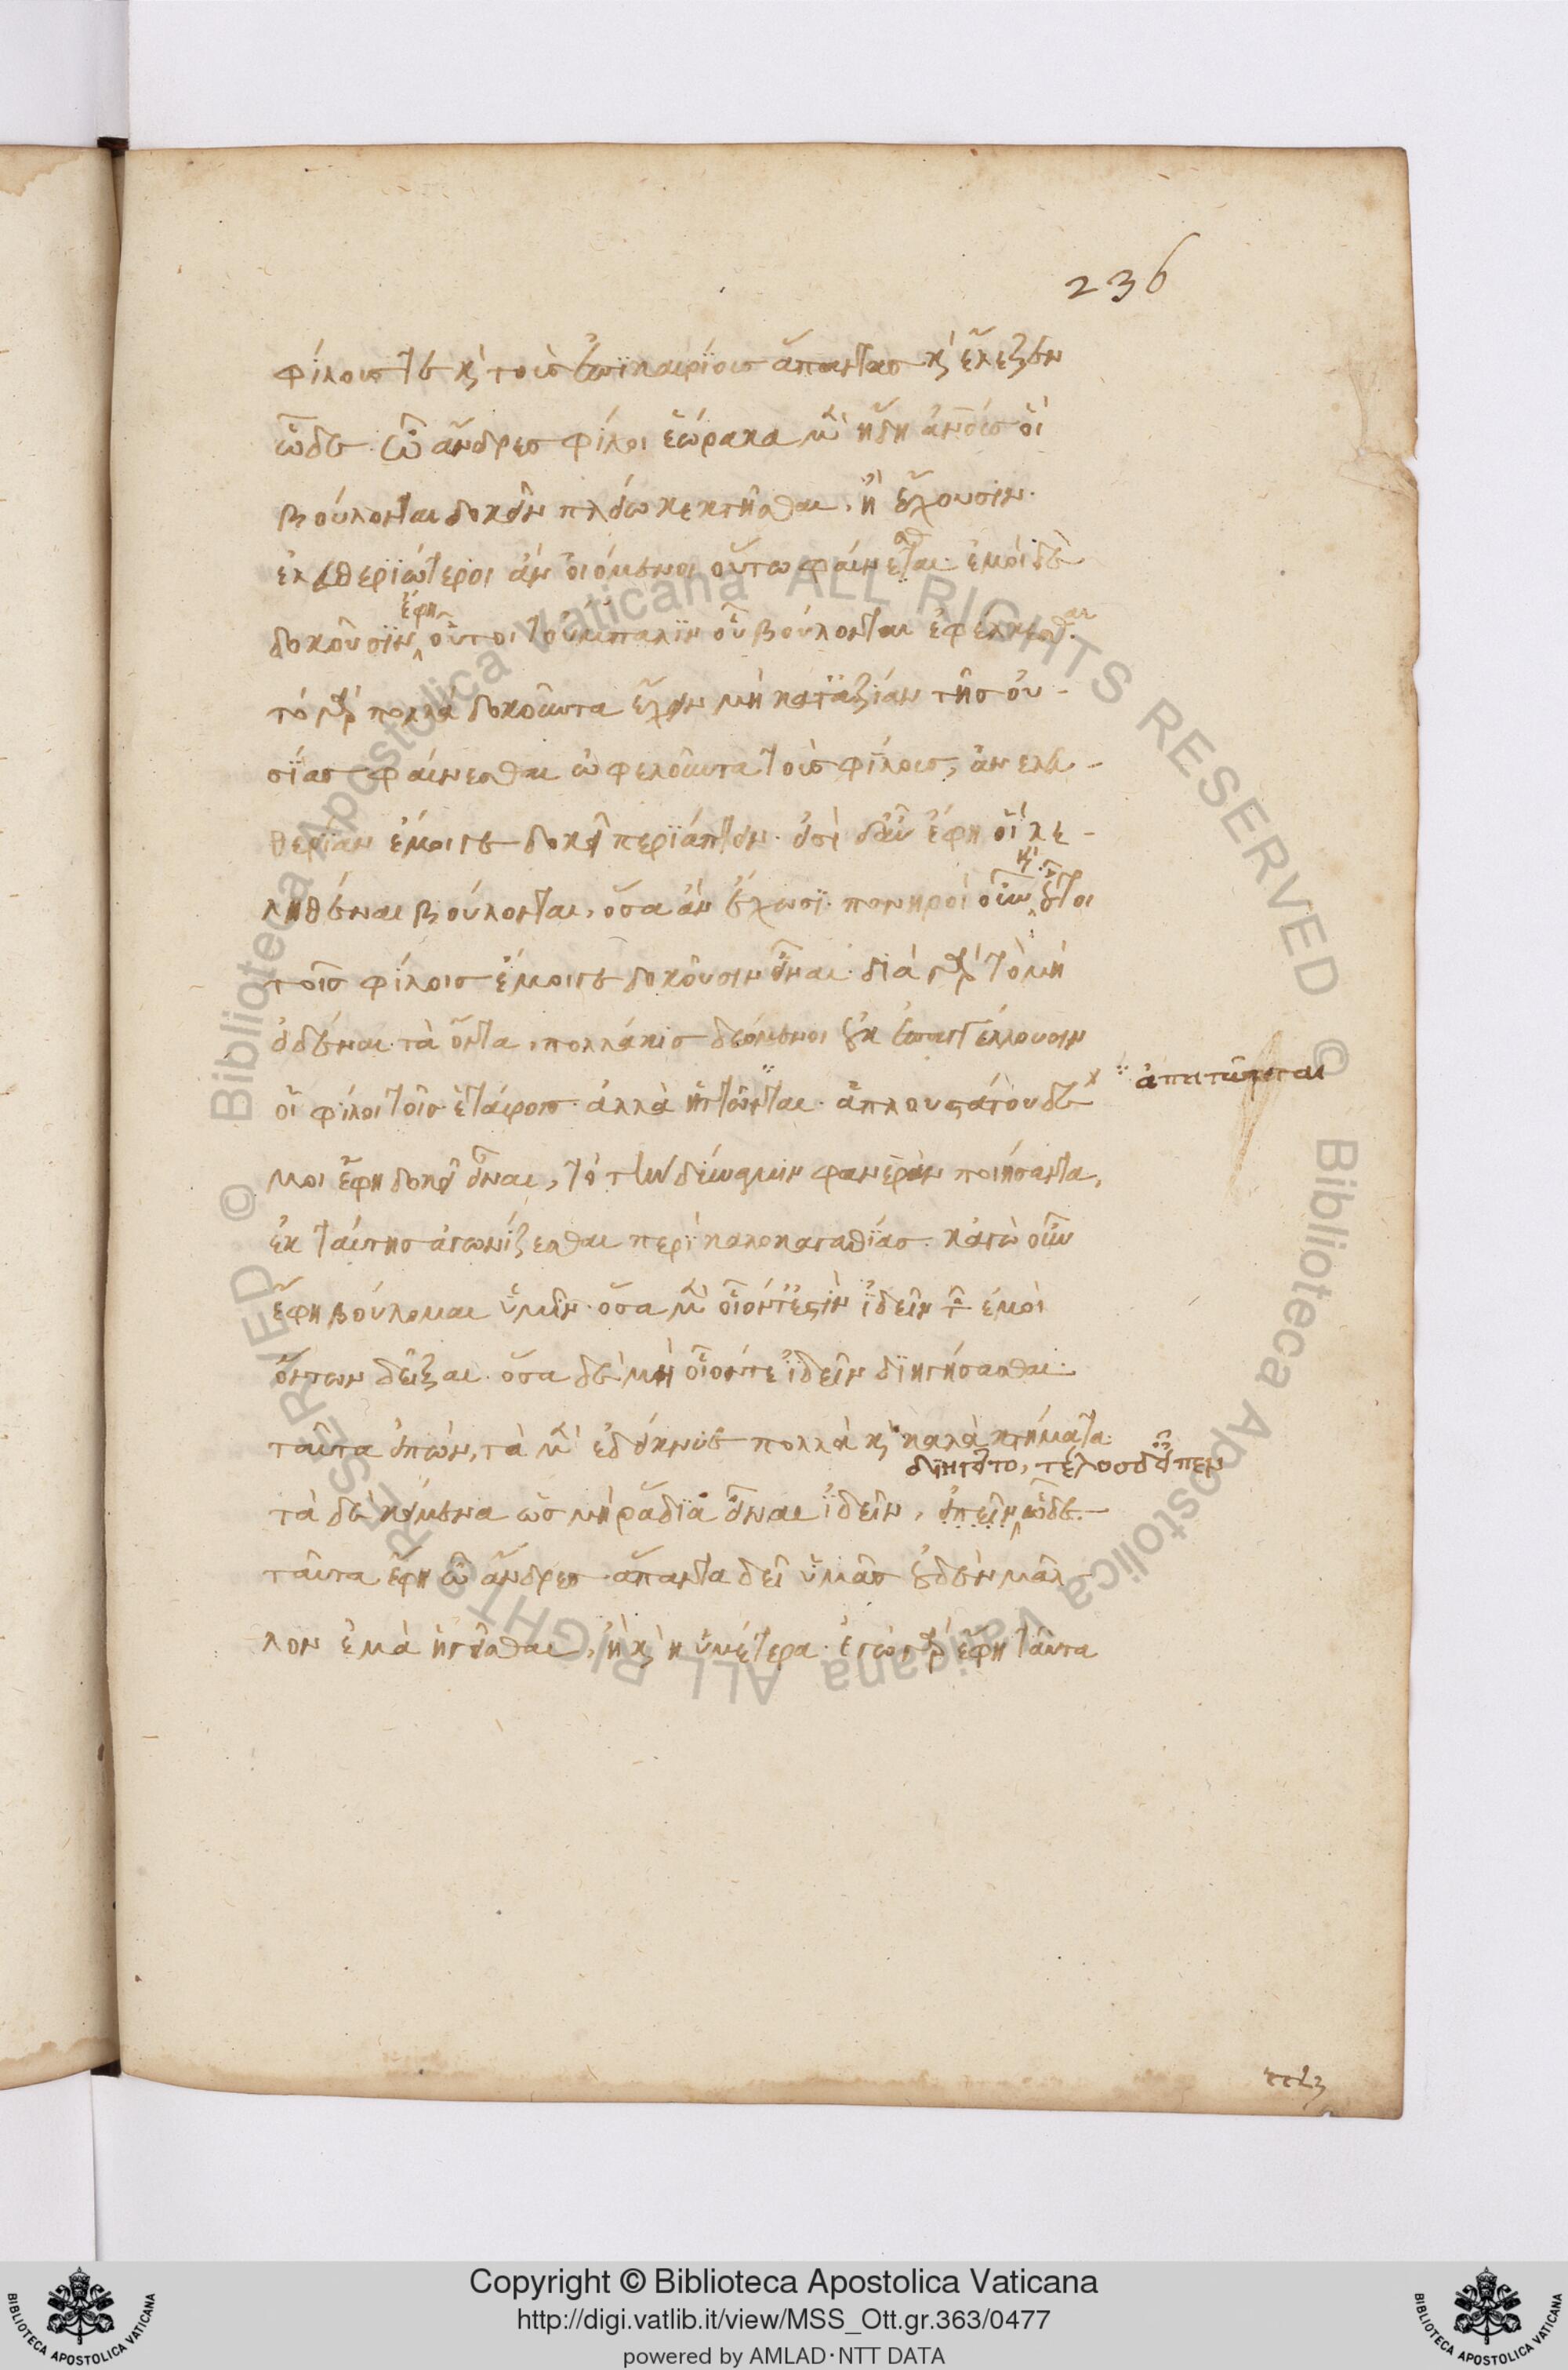 236
φίλους τε καὶ τοὺς ἐπικαιρίους ἅπαντας καὶ ἔλεξεν
ὧδε. ὦ ἄνδρες φίλοι ἑώρακα μὲν ἤδη ἀνθρώπους οἳ
βούλονται δοκεῖν πλείω κεκτῆσθαι, ἢ ἔχουσιν.
ἐλευθεριώτεροι ἂν οἰόμενοι οὕτω φαίνεσθαι. ἐμοὶ δὲ
δοκοῦσιν ἔφη οὗτοι τοὔμπαλιν οὗ βούλονται ἐφέλκεσθαι.
τὸ γὰρ πολλὰ δοκοῦντα ἔχειν μὴ κατ' ἀξίαν τῆς οὐ-
σίας φαίνεσθαι ὠφελοῦντα τοὺς φίλους, ἀνελευ-
θερίαν ἔμοιγε δοκεῖ περιάπτειν. εἰσὶ δ' αὖ ἔφη οἳ λε-
ληθέναι βούλονται, ὅσα ἂν ἔχωσι. πονηροὶ οὖν καὶ οὗτοι
τοῖς φίλοις ἔμοιγε δοκοῦσιν εἶναι. διὰ γὰρ τὸ μὴ
εἰδέναι τὰ ὄντα, πολλάκις δεόμενοι οὐκ ἐπαγγέλλουσιν
οἱ φίλοι τοῖς ἑταίροις. ἀλλὰ ἡττῶνται. ἁπλουστάτου δέ
ἀπατῶνται
μοι ἔφη δοκεῖ εἶναι, τὸ τὴν δύναμιν φανερὰν ποιήσαντα,
ἐκ ταύτης ἀγωνίζεσθαι περὶ καλοκαγαθίας. κἀγὼ οὖν
ἔφη βούλομαι ὑμῖν. ὅσα μὲν οἷόν τέ ἐστιν ἰδεῖν τῶν ἐμοὶ
ὄντων δεῖξαι. ὅσα δὲ μὴ οἷόν τε ἰδεῖν διηγήσασθαι.
ταῦτα εἰπών, τὰ μὲν ἐδείκνυε πολλὰ καὶ καλὰ κτήματα.
διηγεῖτο, τέλος δὲ εἶπεν
τὰ δὲ κείμενα ὡς μὴ ῥᾴδια εἶναι ἰδεῖν, εἰπεῖν ὧδε.
ταῦτα ἔφη ὦ ἄνδρες. ἅπαντα δεῖ ὑμᾶς οὐδὲν μᾶλ-
λον ἐμὰ ἡγεῖσθαι, ἢ καὶ ὑμέτερα. ἐγὼ γὰρ ἔφη ταῦτα
Copyright © Biblioteca Apostolica Vaticana
http://digi.vatlib.it/view/MSS_Ott.gr.363/0477
powered by AMLAD·NTT DATA
BIBLIOTECA APOSTOLICA VATICANA
BIBLIOTECA APOSTOLICA VATICANA
© Biblioteca Apostolica Vaticana ALL RIGHTS RESERVED
© Biblioteca Apostolica Vaticana ALL RIGHTS RESERVED